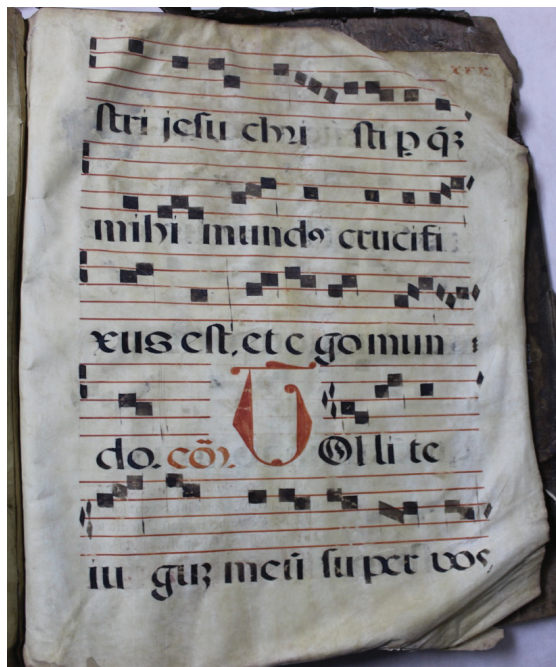 xxx
stri jesu chri sti p q̃ꝫ
mihi mundꝰ crucifi
xus est, et e go mun
do. cõ. T Ol li te
iu guꝫ meũ su per vos